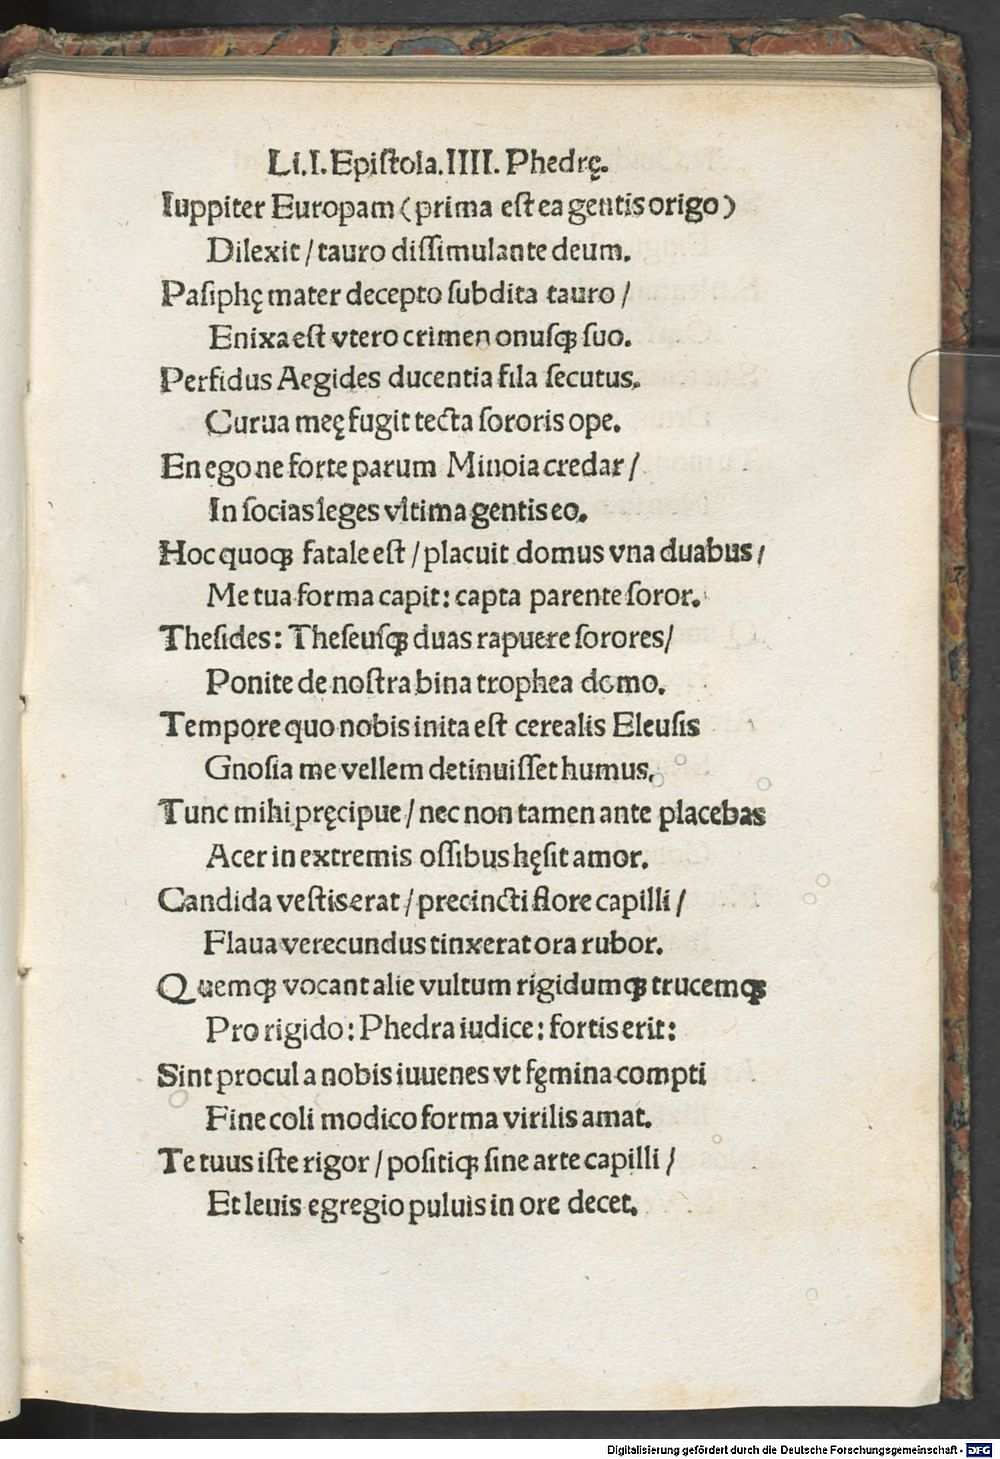 Li.I.Epiſtola.IIII.Phedrę.
Iuppiter Europam (prima eſt ea gentis origo)
Dilexit / tauro diſſimulante deum.
Paſiphę mater decepto ſubdita tauro /
Enixa eſt vtero crimen onuſqꝫ ſuo.
Perfidus Aegides ducentia fila ſecutus.
Curua meę fugit tecta ſororis ope.
En ego ne forte parum Minoia credar /
In ſocias leges vltima gentis eo.
Hoc quoqꝫ fatale eſt / placuit domus vna duabus /
Me tua forma capit: capta parente ſoror.
Theſides: Theſeuſqꝫ duas rapuere ſorores /
Ponite de noſtra bina trophea domo.
Tempore quo nobis inita eſt cerealis Eleuſis
Gnoſia me vellem detinuiſſet humus.
Tunc mihi pręcipue / nec non tamen ante placebas
Acer in extremis oſſibus hęſit amor.
Candida veſtis erat / precincti flore capilli /
Flaua verecundus tinxerat ora rubor.
Quemqꝫ vocant alie vultum rigidumqꝫ trucemqꝫ
Pro rigido: Phedra iudice: fortis erit:
Sint procul a nobis iuuenes vt fęmina compti
Fine coli modico forma virilis amat.
Te tuus iſte rigor / poſitiqꝫ ſine arte capilli /
Et leuis egregio puluis in ore decet.
Digitalisierung gefördert durch die Deutsche Forschungsgemeinschaft - DFG